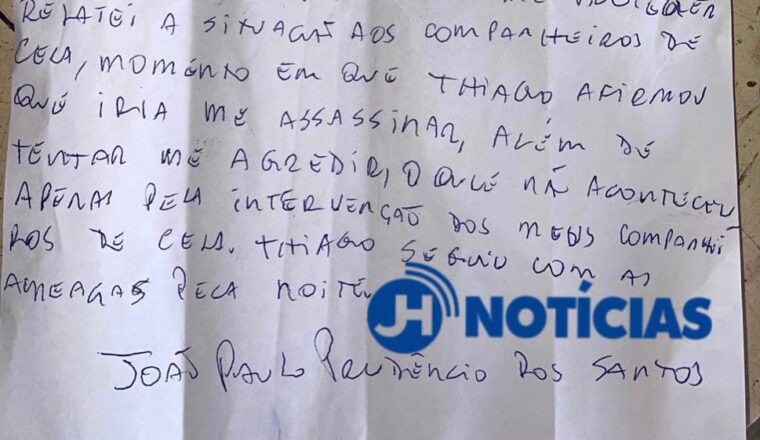 RELATEI A SITUAÇÃO AOS COMPANHEIROS DE
CELA, MOMENTO EM QUE THIAGO AFIRMOU
QUE IRIA ME ASSASSINAR, ALÉM DE
TENTAR ME AGREDIR, O QUE NÃO ACONTECEU
APENAS PELA INTERVENÇÃO DOS MEUS COMPANHEI
ROS DE CELA. THIAGO SEGUIU COM AS
AMEAÇAS PELA NOITE
JH NOTÍCIAS
JOÃO PAULO PRUDÊNCIO DOS SANTOS